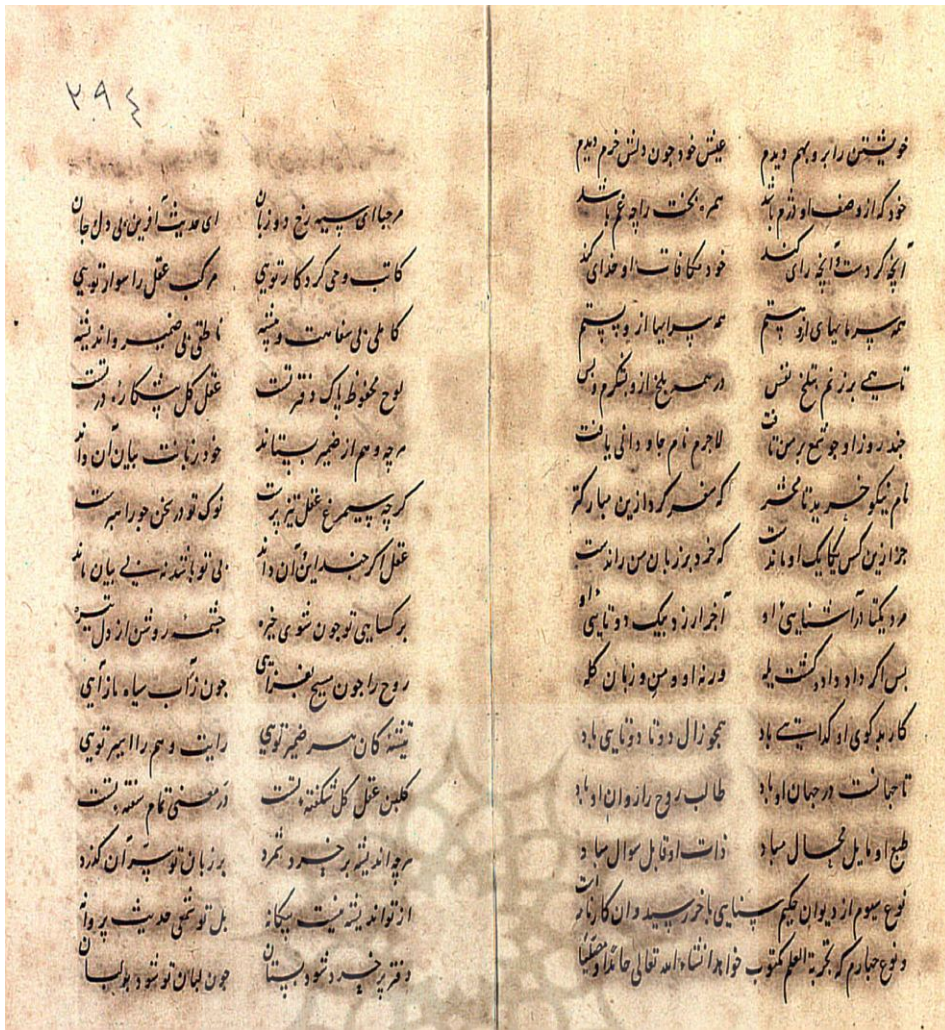 خویشتن را برو بهم دیدم عیش خود جون دلش خرم دیدم
خود که از وصف او دژم باشد همره بخت را چه غم باشد
آنچه کردست وآنچه رای کند خود مکافات او خدای کند
همه سرمایهای ازو هستم همه پیرایها ازو بستم
تا همی برزنم بتلخ نفس در همه بلخ ازو بشکرم وبس
جند روز او جو شمع بر من تافت لاجرم نام جاودانی یافت
نام نیکو خرید تا محشر که سفر کرد ازین مبارکتر
جز ازین کس یکایک او ماندست که خرد بر زبان من راندست
مرد یکتا در آشنایی او آخر ارزد بیک دوتایی او
بس اکر داد داد و کشت یله ورنه او ومن وزبان کله
کار بد کوی او کدایی باد همجو زال دوتا دوتایی باد
تا جهانست در جهان او باد طالب روح را روان او باد
طبع او مایل محال مباد ذات او قابل سوال مباد
نوع سیوم از دیوان حکیم سنایی باخر رسید وان
ونوع جهارم که تجربة العلم مکتوب خواهد انشاء الله تعالی حامدا ومصلیا
۲۹٤
مرحبا ای سیه رخ دو زبان ای حدیث آفرین بی دل وجان
کاتب وحی کردکار تویی مرکب عقل را سوار تویی
کاملی بی سفاهت و پیشه ناطقی بی ضمیر واندیشه
لوح محفوظ پاک دفتر تست عقل کل پیشکاره در تست
هرچه وهم از ضمیر بستاند خود زبانت بیان آن داند
کرچه سیمرغ عقل تیز پرست نوک تو در سخن جو راهبرست
عقل اکر جند این آن داند بی تو باشد نه بی بیان ماند
بر کسایی تو جون شوی خیره جشمه روشن از دل تیره
روح را جون مسیح بفزایی جون زآب سیاه باز آیی
تیشه کان هر ضمیر تویی رایت وهم را امیر تویی
کلبن عقل کل شکفته تست در معنی تمام سفته تست
هرچه اندیشه بر خرد شمرد بر زبان تو سر آن کذرد
از تو اندیشه نیست بیکانه بل تو شمعی حدیث پروانه
دفتر بر خرد شود بستان جون لبان تو شود بولبان